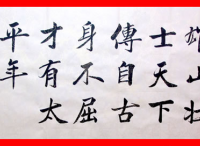 雄山壯
士天下
傳自古
身不屈
才有太
平年